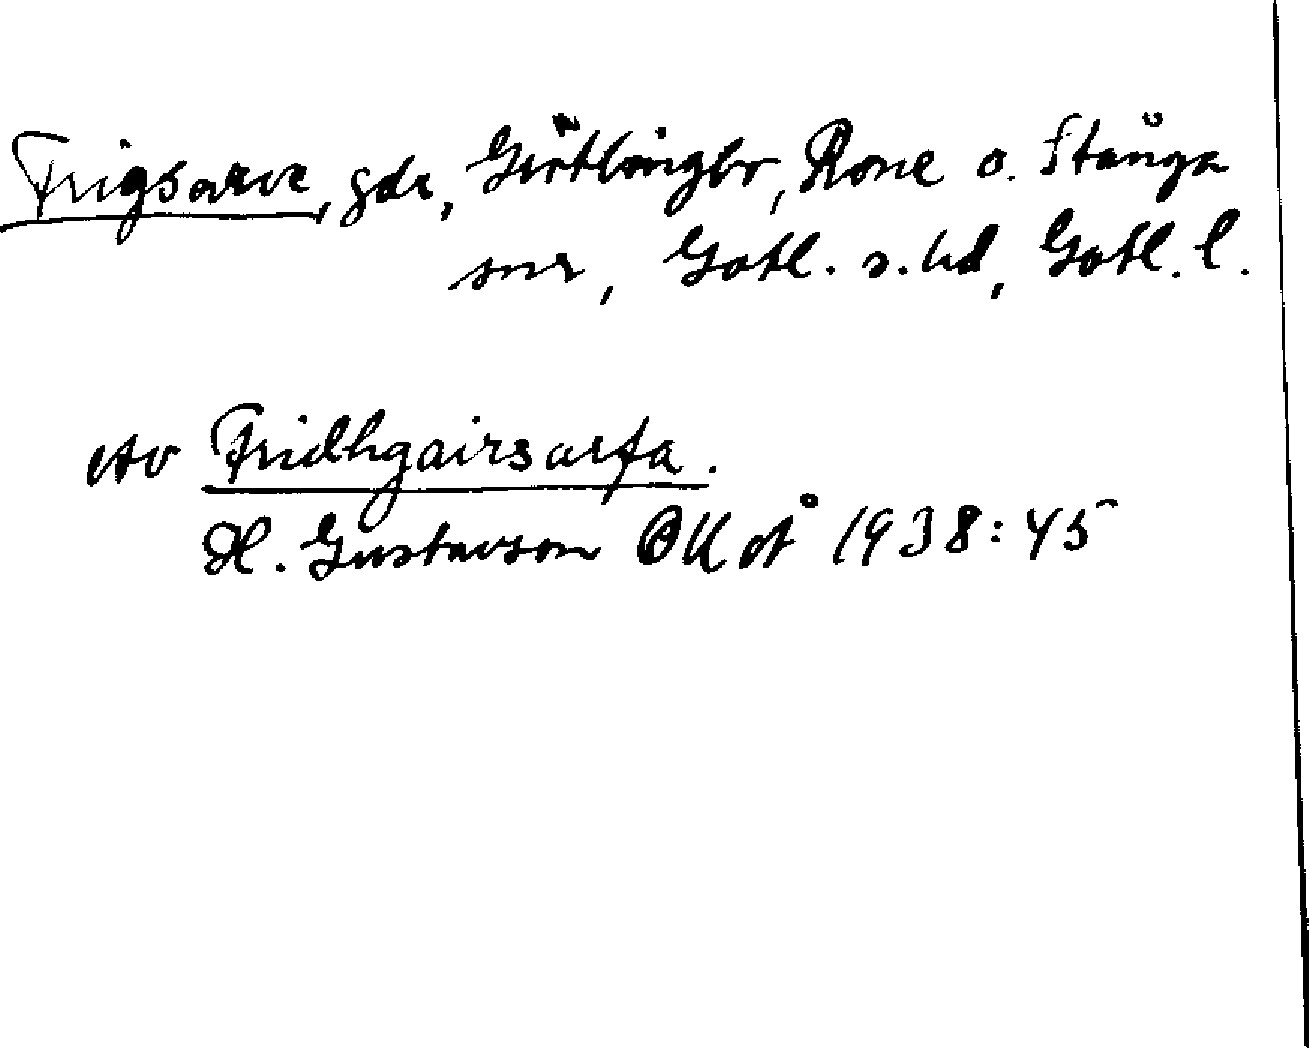 Frigsarve, gdr, Gerthöringbr, Rone o. Stånga
snr, Gotl. s. hd, Gotl. l.
Av Fridhgairsarfa.
H. Gustavson OUoÅ 1938:45